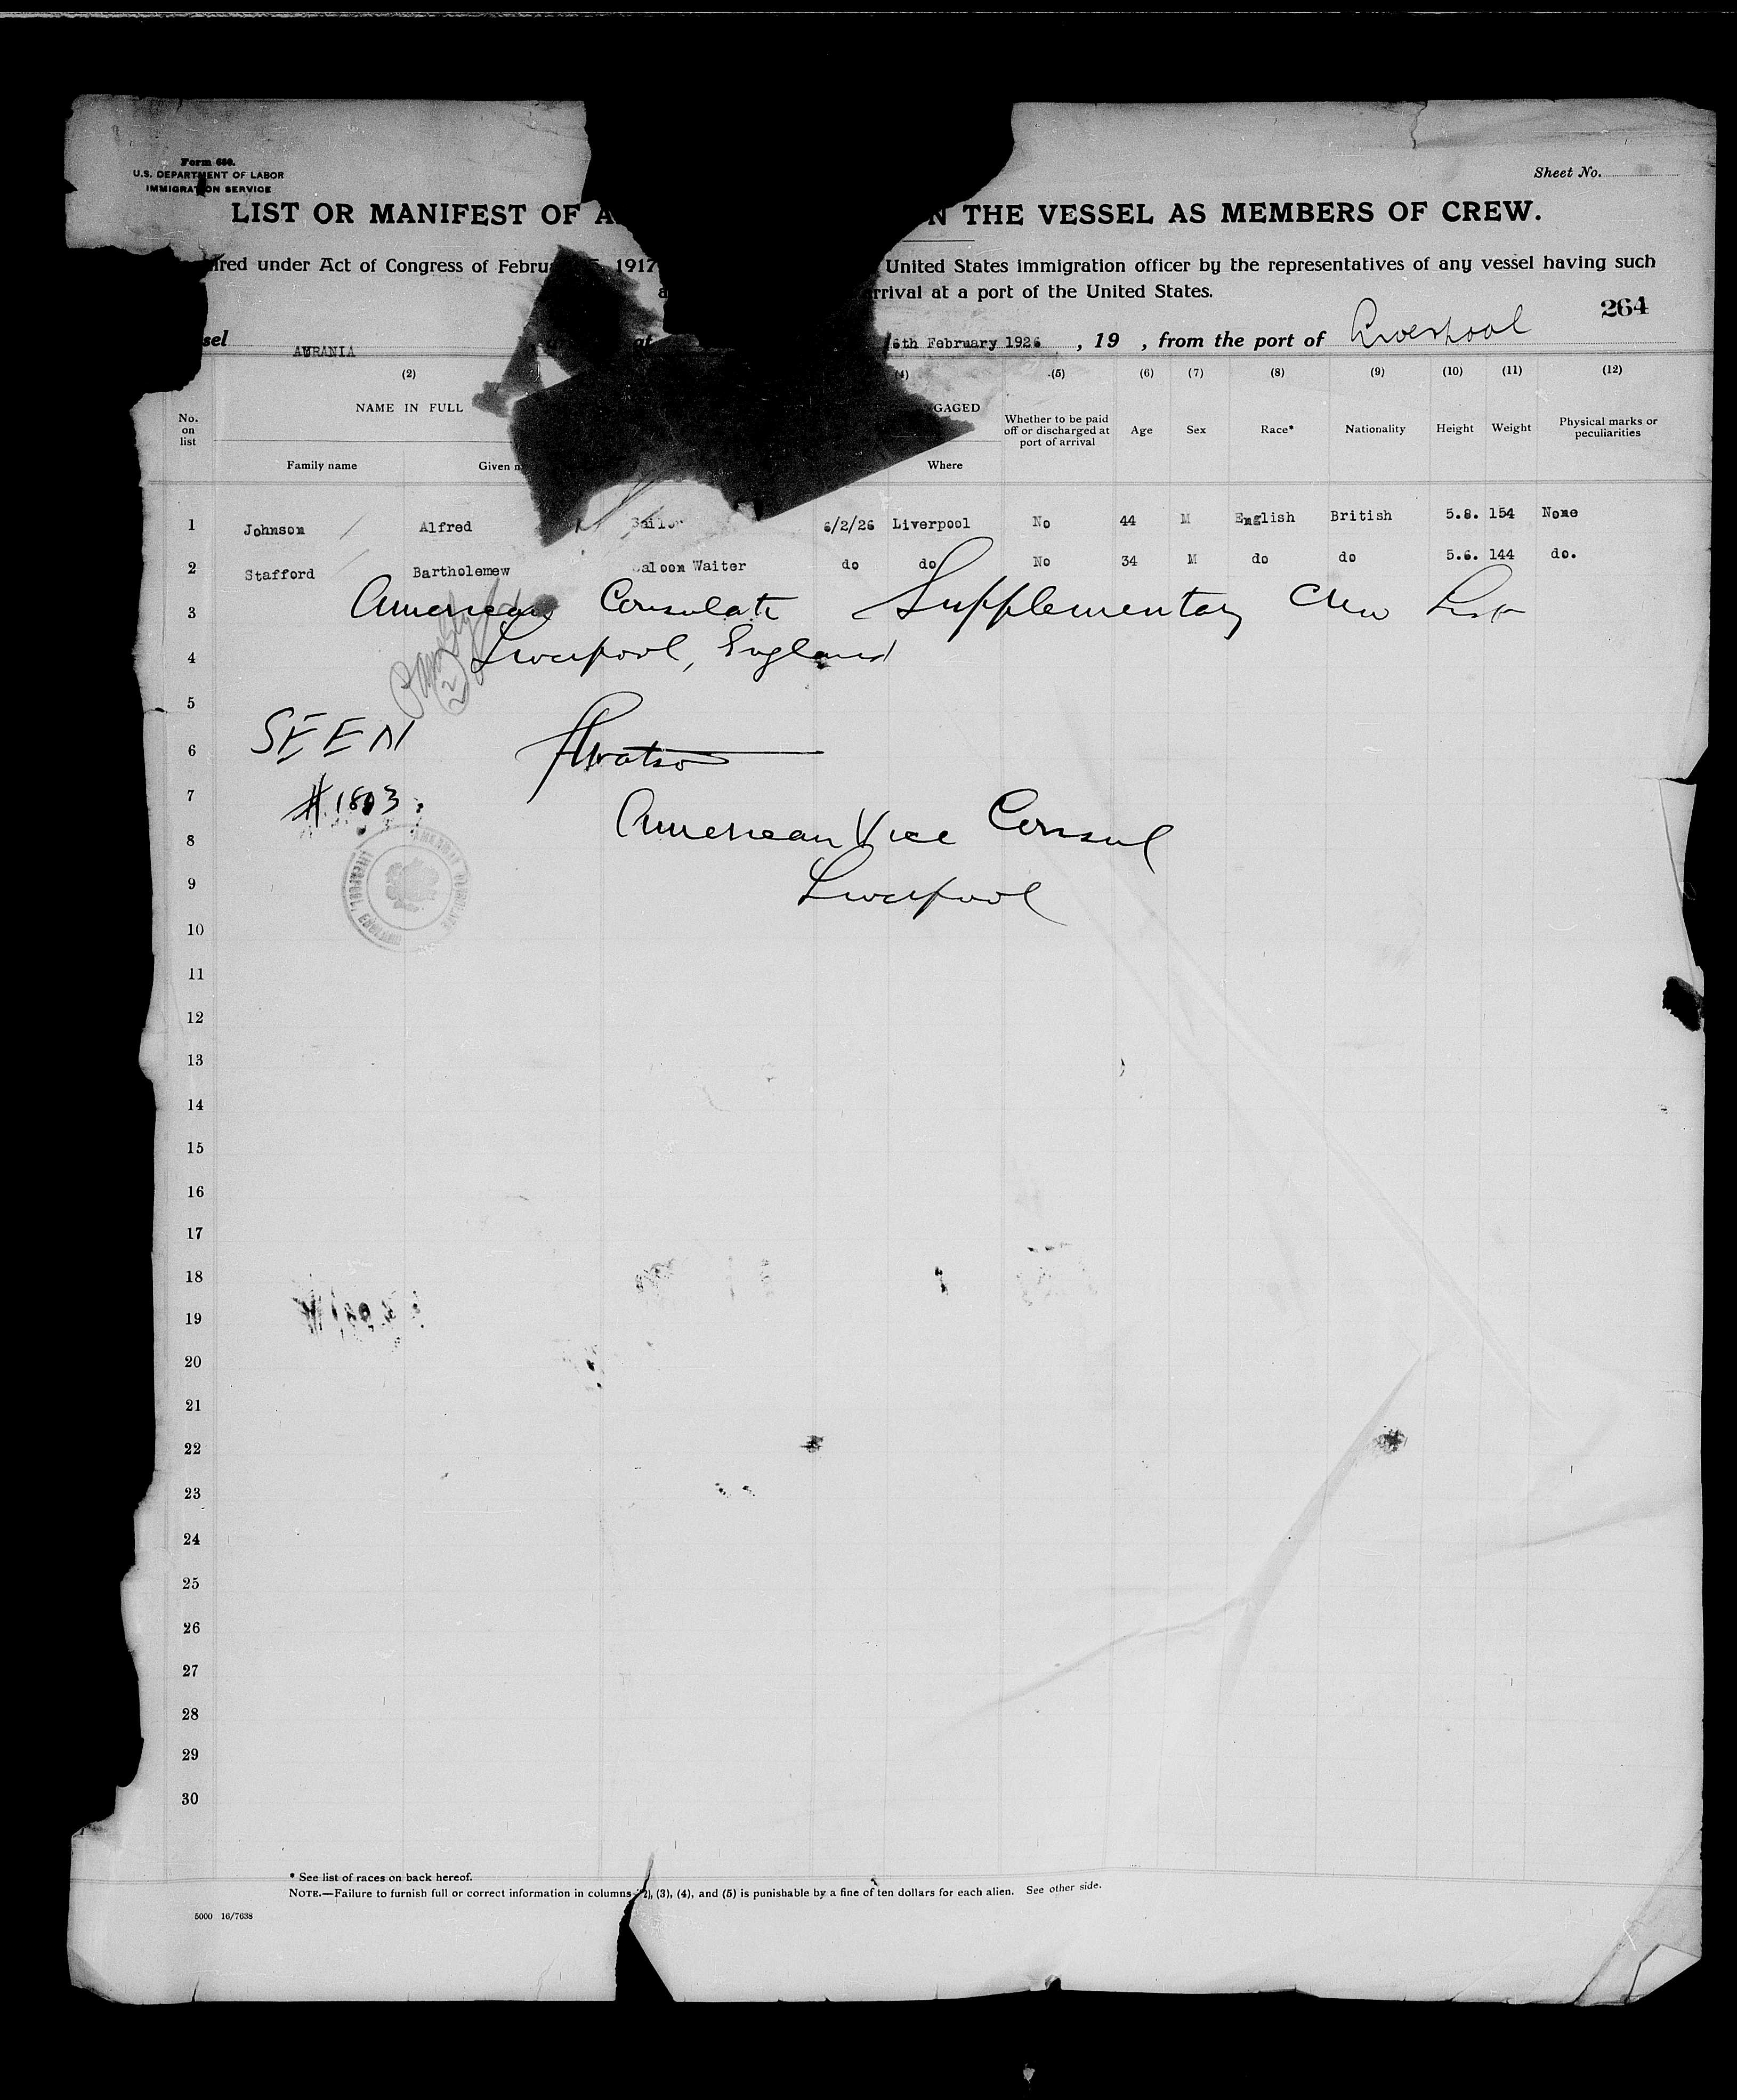 Form 680.
U.S. DEPARTMENT OF LABOR
IMMIGRATION SERVICE
Sheet No.
LIST OR MANIFEST OF A N THE VESSEL AS MEMBERS OF CREW.
ired under Act of Congress of Febru 1917 United States immigration officer by the representatives of any vessel having such
rrival at a port of the United States.
264
sel AURANIA at 6th February 1926 , 19 , from the port of Liverpool
(2) (4) (5) (6) (7) (8) (9) (10) (11) (12)
No. on list NAME IN FULL GAGED Whether to be paid off or discharged at port of arrival Age Sex Race* Nationality Height Weight Physical marks or peculiarities
Family name Given n Where
1 Johnson Alfred Sailor 6/2/26 Liverpool No 44 M English British 5.8. 154 None
2 Stafford Bartholemew aloon Waiter do do No 34 M do do 5.6. 144 do.
3 American Consulate Supplementary Crew List
4 Liverpool, England
5
6 SEEN
7 #1803
8 American Vice Consul
9 Liverpool
10
11
12
13
14
15
16
17
18
19
20
21
22
23
24
25
26
27
28
29
30
* See list of races on back hereof.
NOTE.—Failure to furnish full or correct information in columns (2), (3), (4), and (5) is punishable by a fine of ten dollars for each alien. See other side.
5000 16/7638